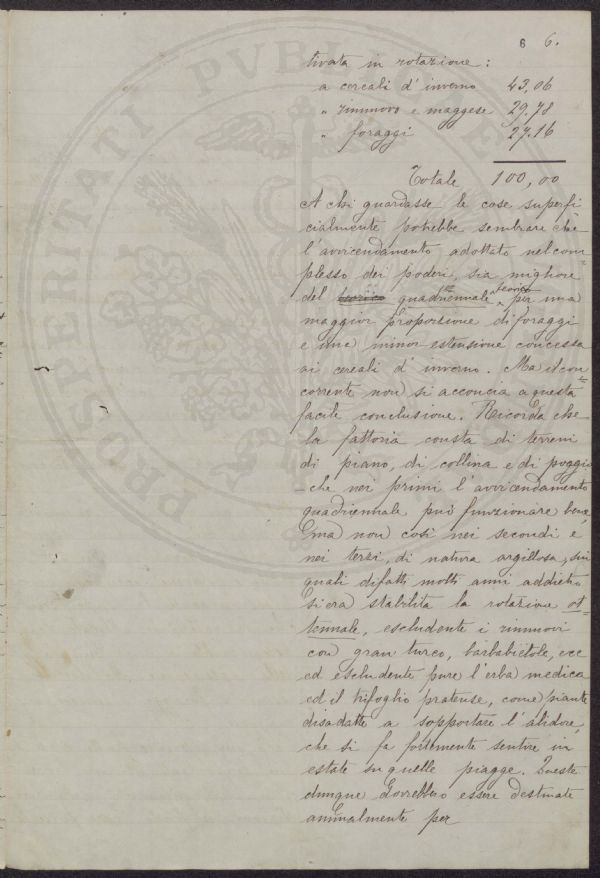 6 6.
tivata in rotazione:
a cereali d'inverno 43,06
" rinnovo e maggese 29.78
" foraggi 27.16
Totale 100,00
A chi guardasse le cose superfi-
cialmente potrebbe sembrare che
l'avvicendamento adottato nel com-
plesso dei poderi, sia migliore
del teorico quadriennale teorico per una
maggior proporzione di foraggi
e una minor estensione concessa
ai cereali d'inverno. Ma il con-
corrente non si acconcia a questa
facile conclusione. Ricorda che
la fattoria consta di terreni
di piano, di collina e di poggio
- che nei primi l'avvicendamento
quadriennale può funzionare bene,
ma non così nei secondi e
nei terzi, di natura argillosa, sui
quali difatti molti anni addietro
si era stabilita la rotazione ot-
tennale, escludente i rinnovi
con gran turco, barbabietole, ecc
ed escludente pure l'erba medica
ed il trifoglio pratense, come piante
disadatte a sopportare l'alidore,
che si fa fortemente sentire in
estate su quelle piagge. Queste
dunque dovrebbero essere destinate
annualmente per
PROSPERITATI PVBLICAE